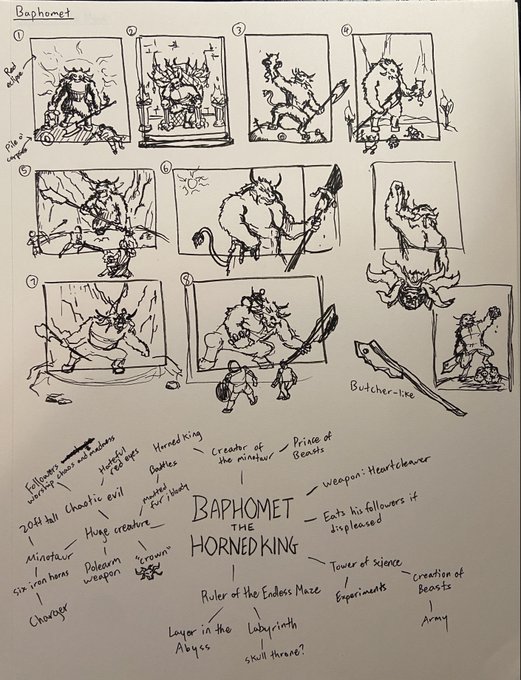 Baphomet
1
2
3
4
Red
eclipse
Pile o'
corpses
5
6
7
8
Butcher-like
Followers
worship chaos and madness
Hateful
red eyes
Horned King
Creator of
the minotaur
Prince of
Beasts
Battles
20ft tall
Chaotic evil
matted
fur; bloody
Weapon: Heartcleaver
BAPHOMET
THE
HORNED KING
Huge creature
Eats his followers if
displeased
Minotaur
Polearm
weapon
"crown"
Six iron horns
Charger
Tower of science
Experiments
Creation of
Beasts
Army
Ruler of the Endless Maze
Layer in the
Abyss
Labyrinth
skull throne?